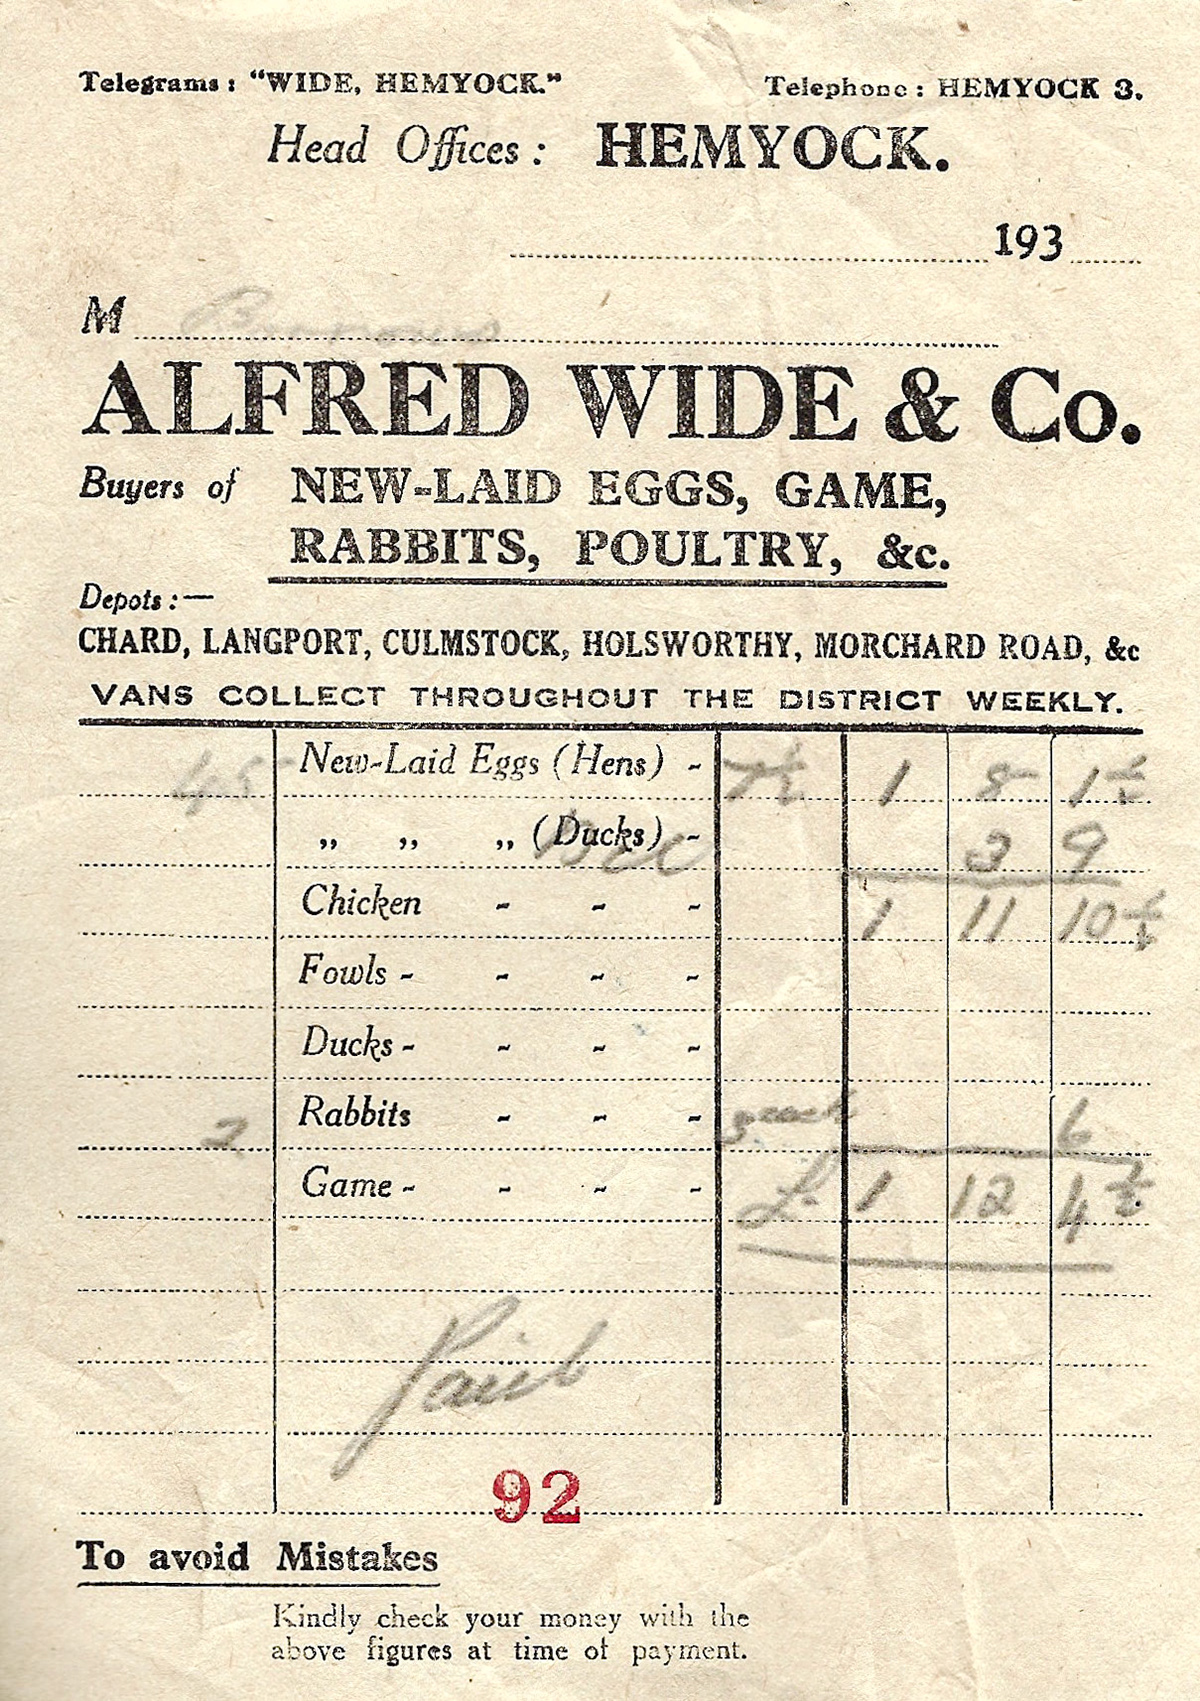 Telegrams: "WIDE, HEMYOCK." Telephone: HEMYOCK 3.
Head Offices: HEMYOCK.
193
M
ALFRED WIDE & Co.
Buyers of NEW-LAID EGGS, GAME,
RABBITS, POULTRY, &c.
Depots:—
CHARD, LANGPORT, CULMSTOCK, HOLSWORTHY, MORCHARD ROAD, &c
VANS COLLECT THROUGHOUT THE DISTRICT WEEKLY.
45 New-Laid Eggs (Hens) - 7½ 1 8 1½
„ „ „ (Ducks) - 3 9
Chicken - - - 1 11 10½
Fowls - - - -
Ducks - - - -
2 Rabbits - - - 3 each 6
Game - - - - £ 1 12 4½
Paid
92
To avoid Mistakes
Kindly check your money with the
above figures at time of payment.